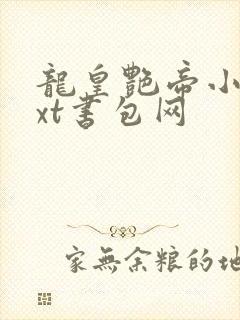 龍皇艷帝小
xt书包网
家無余粮的地